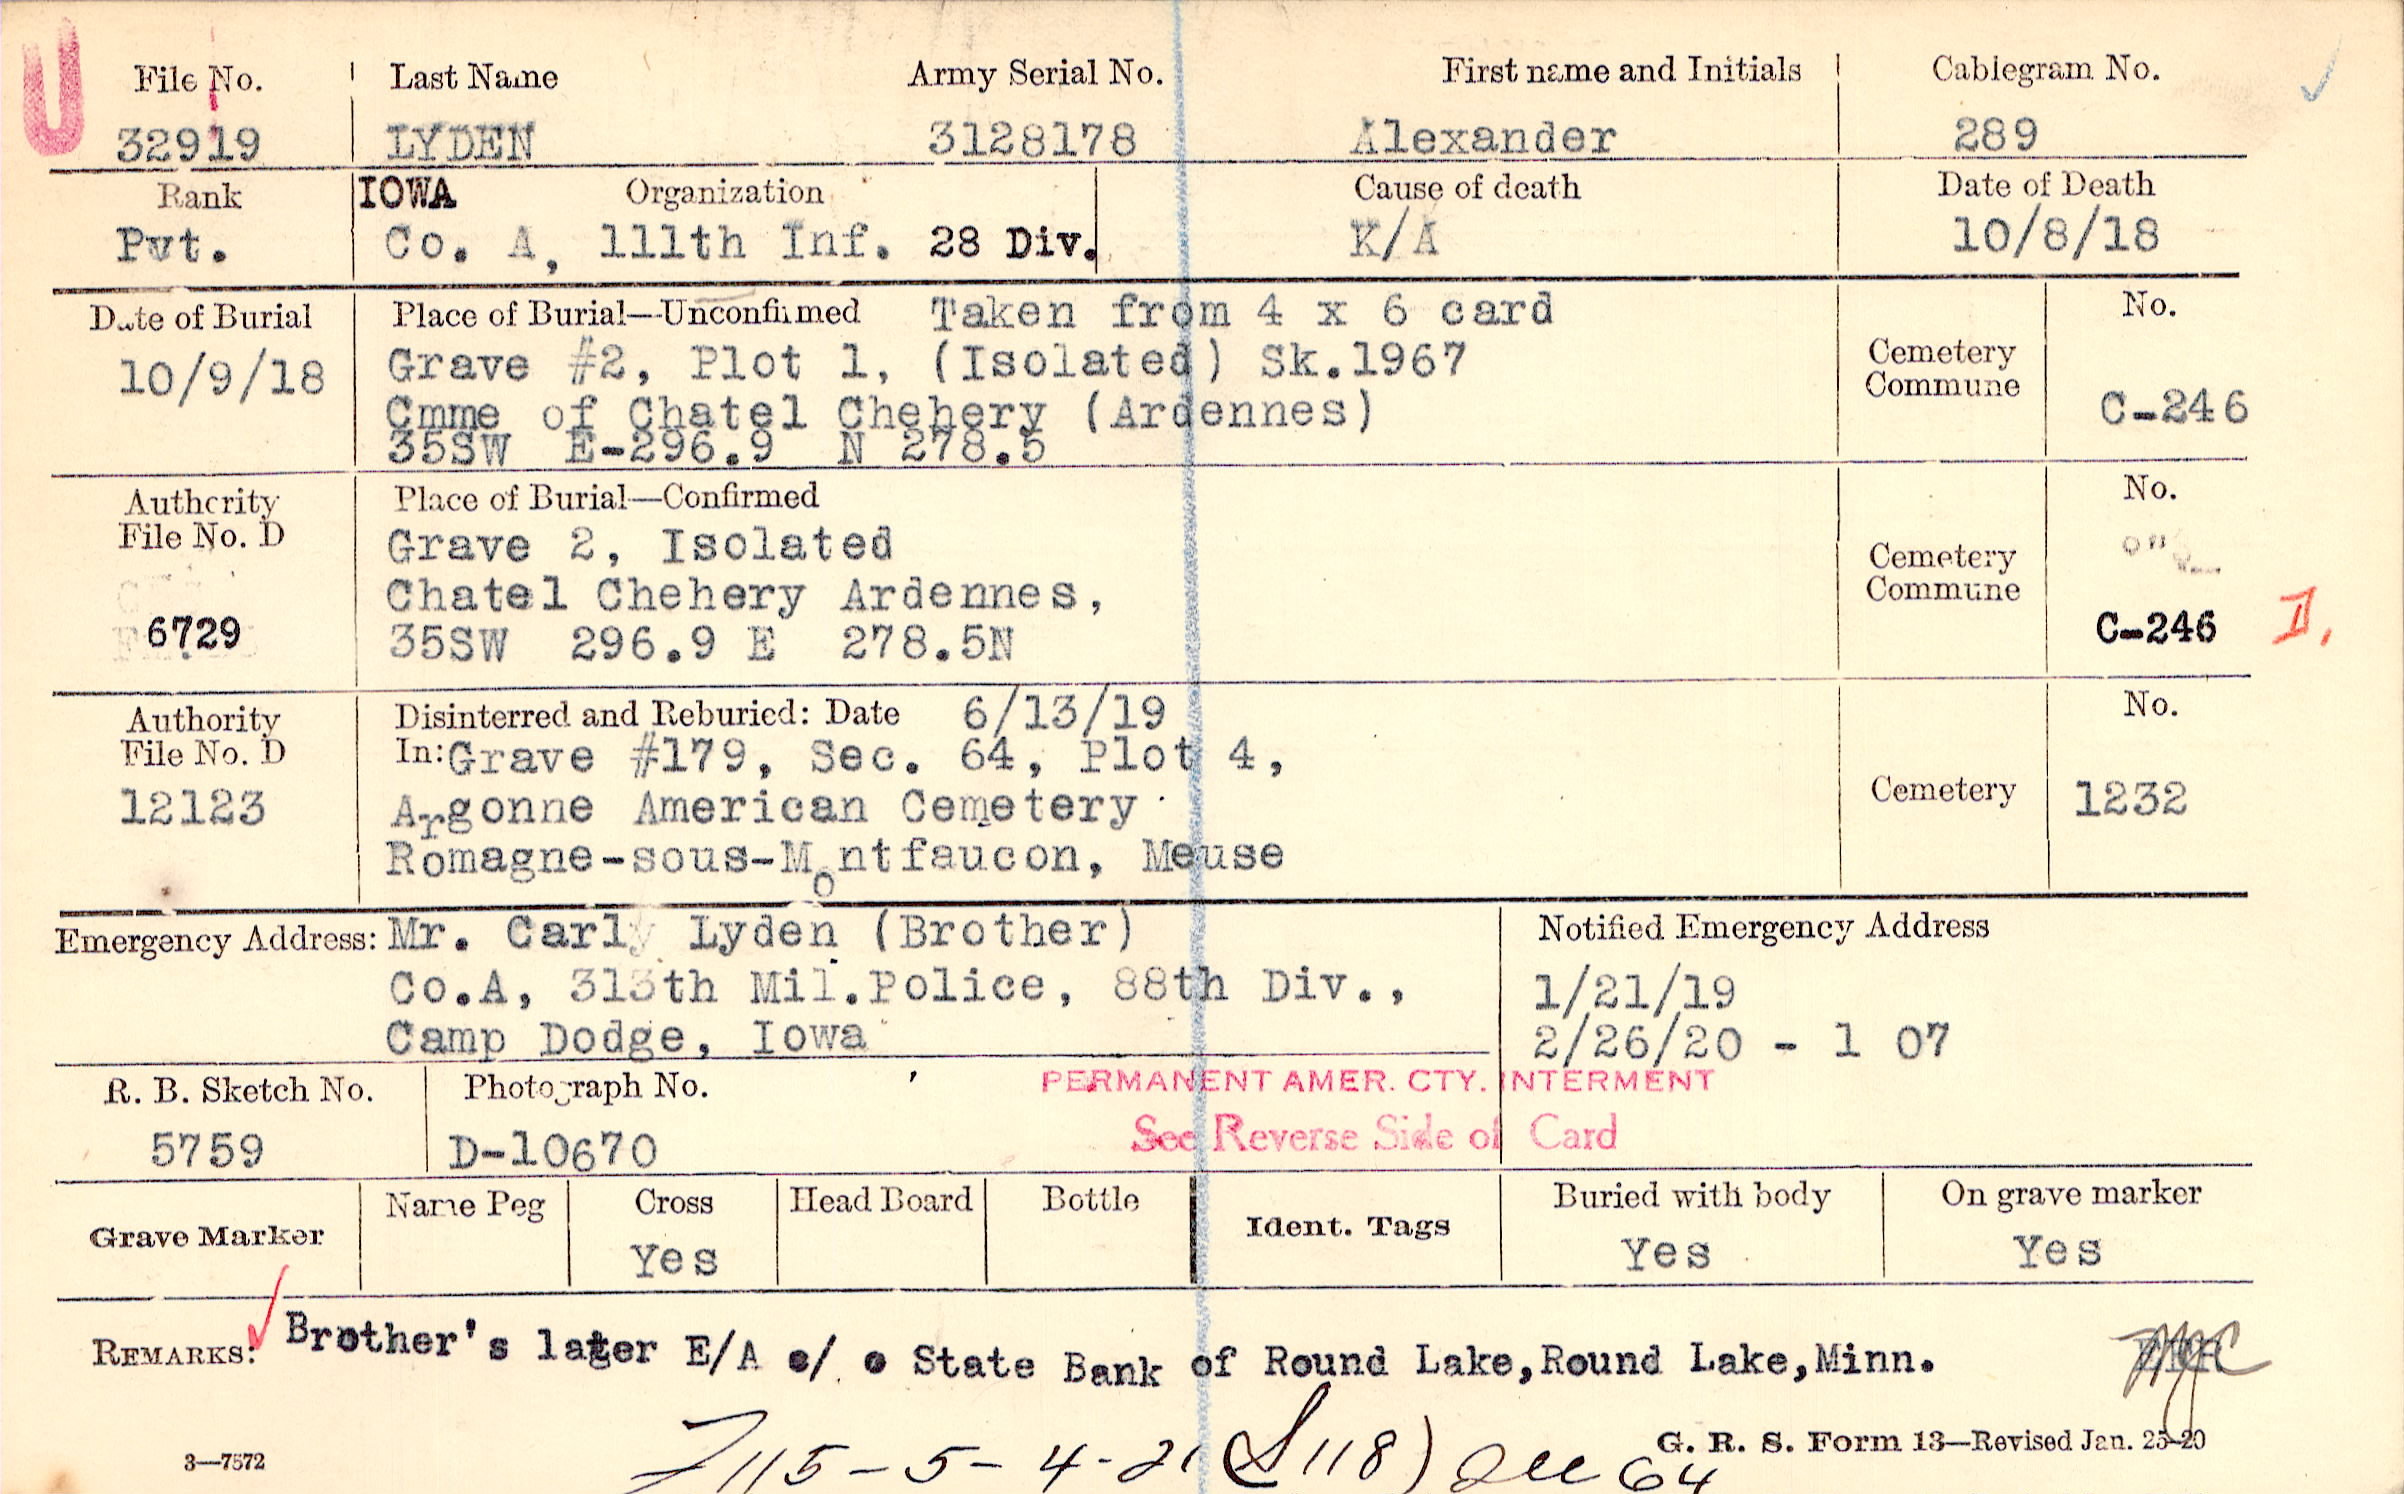 U
File No. Last Name Army Serial No. First name and Initials Cablegram No.
32919 LYDEN 3128178 Alexander 289
Rank IOWA Organization Cause of death Date of Death
Pvt. Co. A, 111th Inf. 28 Div. K/A 10/8/18
Date of Burial Place of Burial—Unconfirmed Taken from 4 x 6 card No.
10/9/18 Grave #2, Plot 1, (Isolated) Sk.1967 Cemetery
Cmme of Chatel Chehery (Ardennes) Commune C-246
35SW E-296.9 N 278.5
Authority Place of Burial—Confirmed No.
File No. D Grave 2, Isolated Cemetery
Chatel Chehery Ardennes, Commune
6729 35SW 296.9 E 278.5N C-246 D.
Authority Disinterred and Reburied: Date 6/13/19 No.
File No. D In: Grave #179, Sec. 64, Plot 4,
12123 Argonne American Cemetery Cemetery 1232
Romagne-sous-Montfaucon, Meuse
Emergency Address: Mr. Carl Lyden (Brother) Notified Emergency Address
Co.A, 313th Mil.Police, 88th Div., 1/21/19
Camp Dodge, Iowa 2/26/20 - 1 07
R. B. Sketch No. Photograph No. PERMANENT AMER. CTY. INTERMENT
5759 D-10670 See Reverse Side of Card
Grave Marker Name Peg Cross Head Board Bottle Ident. Tags Buried with body On grave marker
Yes Yes Yes
REMARKS: Brother's later E/A c/o State Bank of Round Lake, Round Lake, Minn.
3—7572 G. R. S. Form 13—Revised Jan. 25-20
115-5-4-21 (S118)